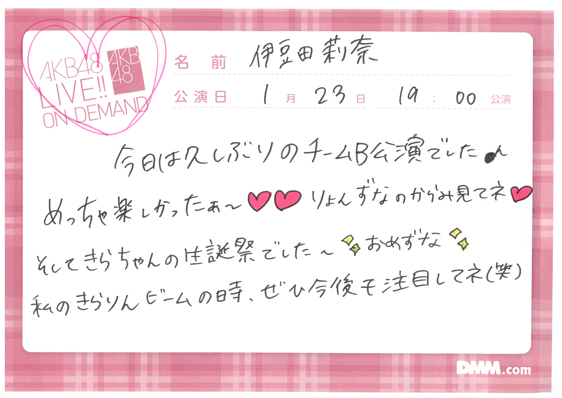 AKB48
LIVE!!
ON DEMAND
AKB
48
名前 伊豆田莉奈
公演日 1月23日 19:00公演
今日は久しぶりのチームB公演でした♪ん
めっちゃ楽しかったぁ〜♥♥ りょんずなのからみ見てネ♥
そしてきらちゃんの生誕祭でした〜 おめずな
私のきらりんビームの時、ぜひ今後も注目してネ(笑)
DMM.com